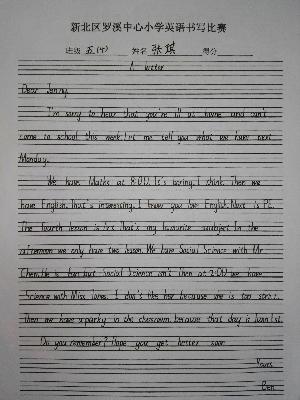 新北区罗溪中心小学英语书写比赛
班级 五(7) 姓名 张琪 得分
A letter
Dear Jenny,
I'm sorry to hear that you're ill at home and can't
come to school this week. Let me tell you what we have next
Monday.
We have Maths at 8:00. It's boring, I think. Then we
have English. That's interesting. I know you love English. Next is P.E.
The fourth lesson is It's my favourite subject. In the
afternoon we only have two lesson. We have Social Science with Mr
Chen. He is fun but Social Science isn't. then at 2:00 we have
Science with Miss Jones. I don't like her because she is too strict.
Then we have a party in the classroom, because that day is June 1st.
Do you remember? Hope you get better soon.
Yours
Ben